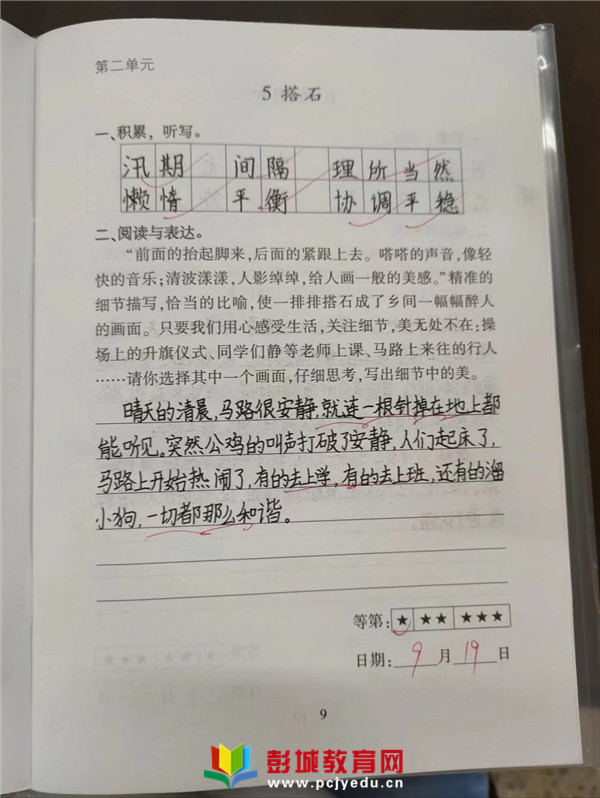 第二单元
5 搭石
一、积累，听写。
汛期 间隔 理所当然
懒惰 平衡 协调平稳
二、阅读与表达。
“前面的抬起脚来，后面的紧跟上去。嗒嗒的声音，像轻
快的音乐；清波漾漾，人影绰绰，给人画一般的美感。”精准的
细节描写，恰当的比喻，使一排排搭石成了乡间一幅幅醉人
的画面。只要我们用心感受生活，关注细节，美无处不在：操
场上的升旗仪式、同学们静等老师上课、马路上来往的行人
……请你选择其中一个画面，仔细思考，写出细节中的美。
晴天的清晨，马路很安静，就连一根针掉在地上都
能听见。突然公鸡的叫声打破了安静，人们起床了，
马路上开始热闹了，有的去上学，有的去上班，还有的溜
小狗，一切都那么和谐。
等第：★ ★★ ★★★
日期：9月19日
9
彭城教育网
www.pcjyedu.cn